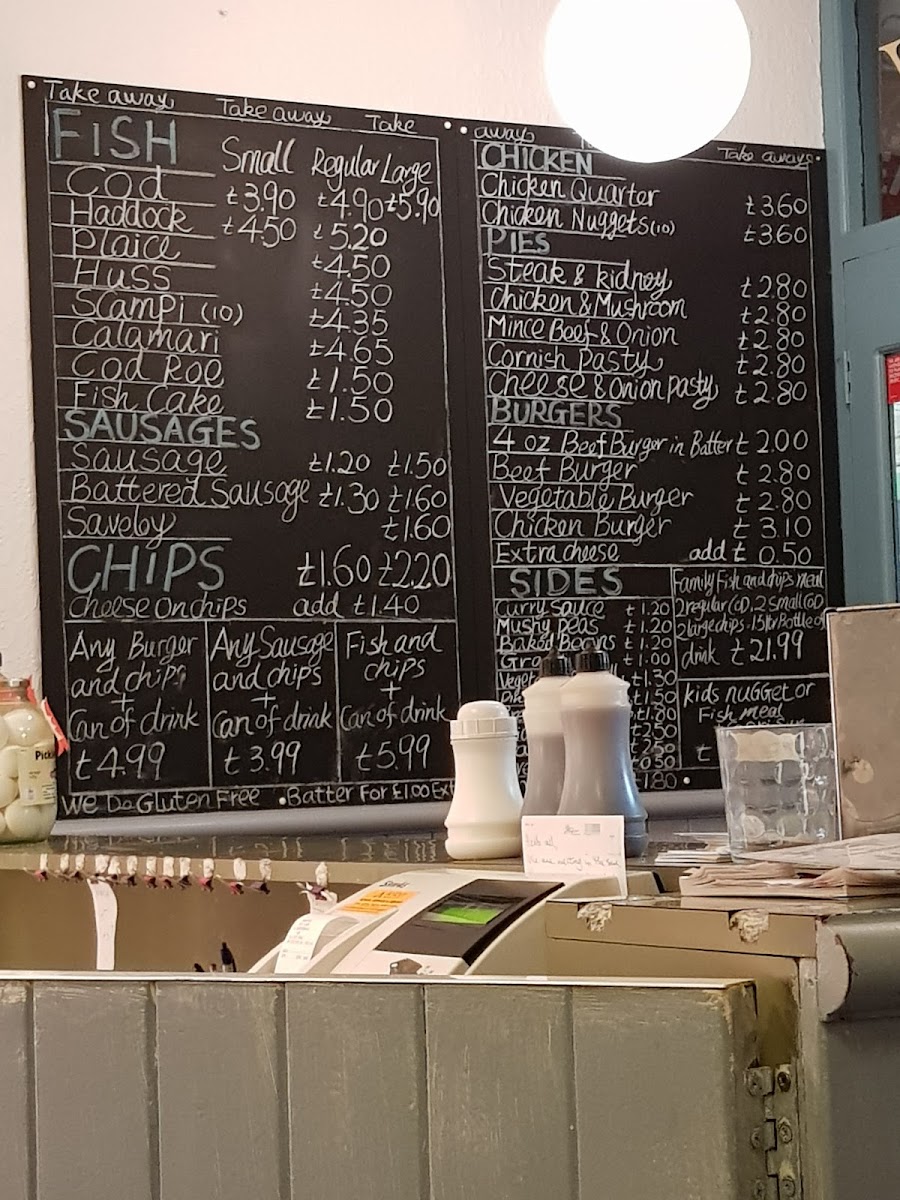 Take away Take away Take
FISH Small Regular Large
Cod £3.90 £4.90 £5.90
Haddock £4.50 £5.20
Plaice £4.50
Huss £4.50
Scampi (10) £4.35
Calamari £4.65
Cod Roe £1.50
Fish Cake £1.50
SAUSAGES
Sausage £1.20 £1.50
Battered Sausage £1.30 £1.60
Saveloy £1.60
CHIPS £1.60 £2.20
Cheese on chips add £1.40
Any Burger
and chips
+
Can of drink
£4.99
Any Sausage
and chips
+
Can of drink
£3.99
Fish and
chips
+
Can of drink
£5.99
We Do Gluten Free Batter For £1.00
away Take away
CHICKEN
Chicken Quarter £3.60
Chicken Nuggets (10) £3.60
PIES
Steak & kidney £2.80
Chicken & Mushroom £2.80
Mince Beef & Onion £2.80
Cornish Pasty £2.80
Cheese & Onion Pasty £2.80
BURGERS
4 oz Beef Burger in Batter £2.00
Beef Burger £2.80
Vegetable Burger £2.80
Chicken Burger £3.10
Extra cheese add £0.50
SIDES
Curry Sauce £1.20
Mushy Peas £1.20
Baked Beans £1.20
£1.00
£1.30
Family Fish and chips meal
2 regular COD, 2 Small COD
2 large chips. 1.5 ltr Bottle of
drink £21.99
kids nugget or
Fish meal